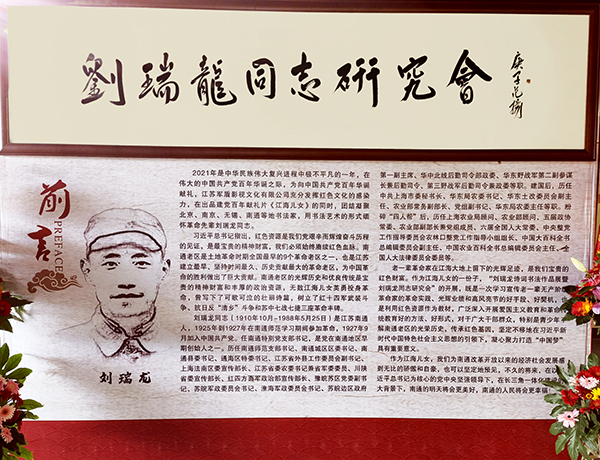 劉瑞龍同志研究會
前言
PREFACE
刘瑞龙
2021年是中华民族伟大复兴进程中极不平凡的一年，在
伟大的中国共产党百年华诞之际，为向中国共产党百年华诞
献礼，江苏军盾影视文化有限公司充分发挥红色文化的感染
力，在出品建党百年献礼片《江海儿女》的同时，团结凝聚
北京、南京、无锡、南通等地书法家，用书法艺术的形式缅
怀革命先辈刘瑞龙同志。
习近平总书记指出，红色资源是我们党艰辛而辉煌奋斗历程
的见证，是最宝贵的精神财富，我们必须始终赓续红色血脉。南
通老区是土地革命时期全国最早的9个革命老区之一，也是江苏
建立最早、坚持时间最久、历史贡献最大的革命老区，为中国革
命的胜利做出了巨大贡献。南通老区的光辉历史和优良传统是宝
贵的精神财富和丰厚的政治资源，无数江海儿女英勇投身革
命，曾写下了可歌可泣的壮丽诗篇，树立了红十四军武装斗
争、抗日反“清乡”斗争和苏中七战七捷三座革命丰碑。
刘瑞龙（1910年10月1日-1988年5月25日）是江苏南通
人，1925年到1927年在南通师范学习期间参加革命，1927年9
月加入中国共产党，任南通特别党支部书记，是党在南通地区早
期创始人之一。历任南通师范支部书记、南通城区区委书记、南
通县委书记、通海区特委书记、江苏省外县工作委员会副书记、
上海法南区委宣传部长、江苏省委农委书记兼省军委委员、川陕
省委宣传部长、红四方面军政治部宣传部长、豫皖苏区党委副书
记、苏皖军政委员会书记、淮海军政委员会书记、苏皖边区政府
第一副主席、华中北线后勤司令部政委、华东野战军第二副参谋
长兼后勤司令、第三野战军后勤司令兼政委等职。建国后，历任
中共上海市委秘书长、华东局农委书记、华东土改委员会副主
任、农业部常务副部长、党组副书记、华东局农委主任等职。粉
碎“四人帮”后，历任上海农业局顾问、农业部顾问、五届政协
常委、农业部副部长兼党组成员、六届全国人大常委、中央绿化
工作指导委员会农林口整党工作指导小组组长、中国大百科全书
总编辑委员会副主任、中国农业百科全书总编辑委员会主任、全
国人大法律委员会委员等。
老一辈革命家在江海大地上留下的光辉足迹，是我们宝贵的
红色财富。作为江海儿女的一份子，“刘瑞龙诗词书法作品展暨
刘瑞龙同志研究会”的开展，既是一次学习宣传老一辈无产阶级
革命家的革命实践、光辉业绩和高风亮节的好手段、好契机，也
是利用红色资源作为教材，广泛深入开展爱国主义教育和革命传
统教育的好方法、好形式，对于广大干部群众，特别是青少年了
解南通老区的光荣历史，传承红色基因，坚定不移地在习近平新
时代中国特色社会主义思想的引领下，凝心聚力打造“中国梦”
具有重要意义。
作为江海儿女，我们为南通改革开放以来的经济社会发展感
到无比的骄傲和自豪，也可以坚定地预见，不久的将来，在以
近平总书记为核心的党中央坚强领导下，在长三角一体化建设
大背景下，南通的明天将会更美好，南通的人民将会更幸福